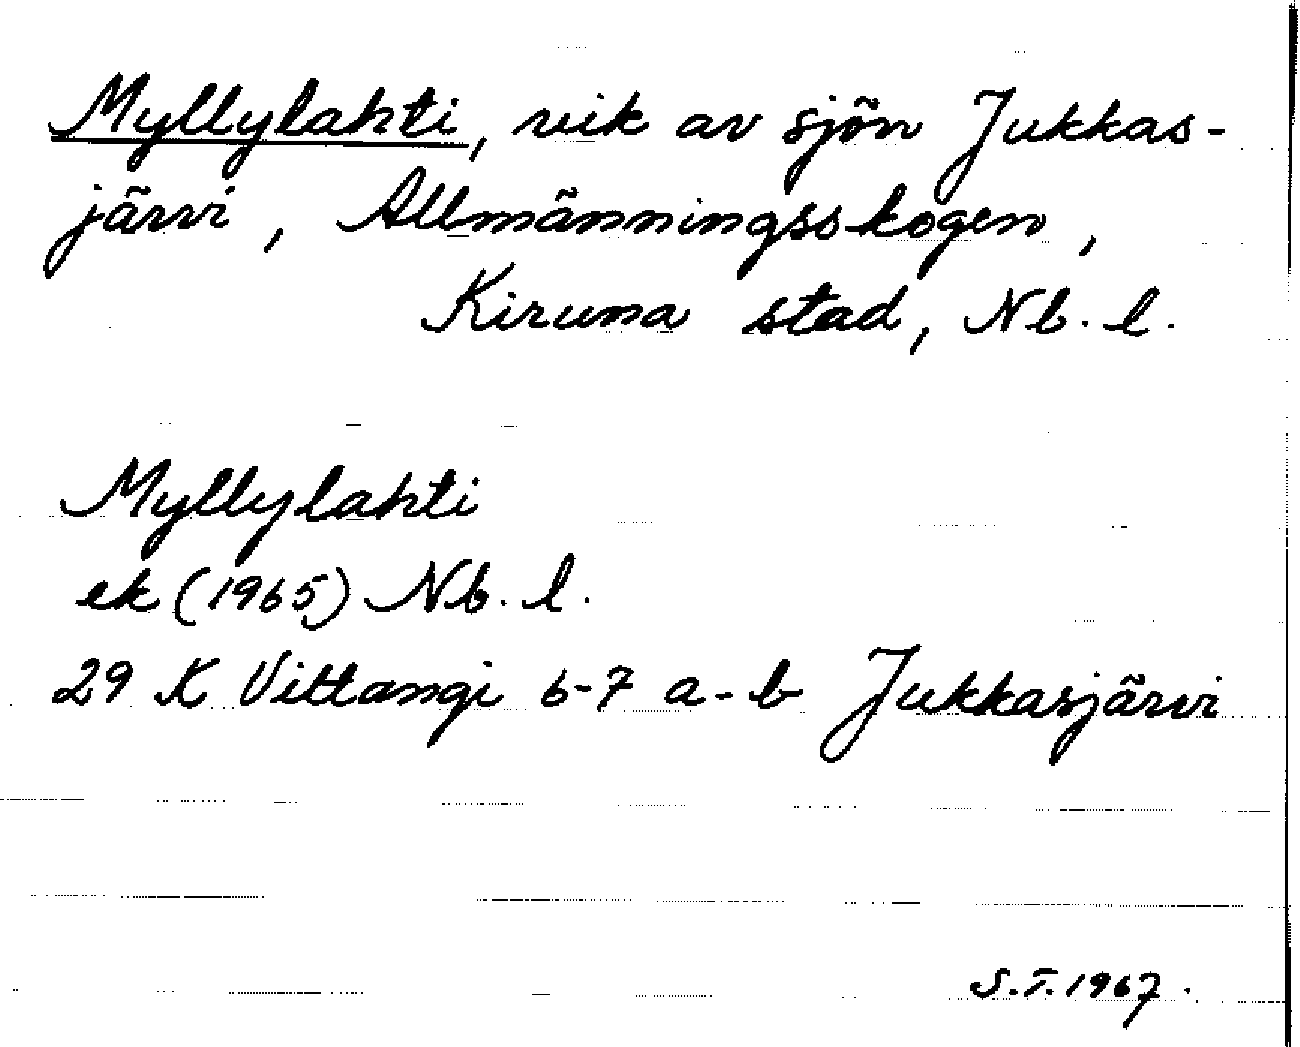 Myllylahti, vik av sjön Jukkas-
järvi, Allmänningsskogen,
Kiruna stad, Nb. l.
Myllylahti
ek (1965) Nb. l.
29 K Vittangi 6-7 a-b Jukkasjärvi
S.T. 1967.